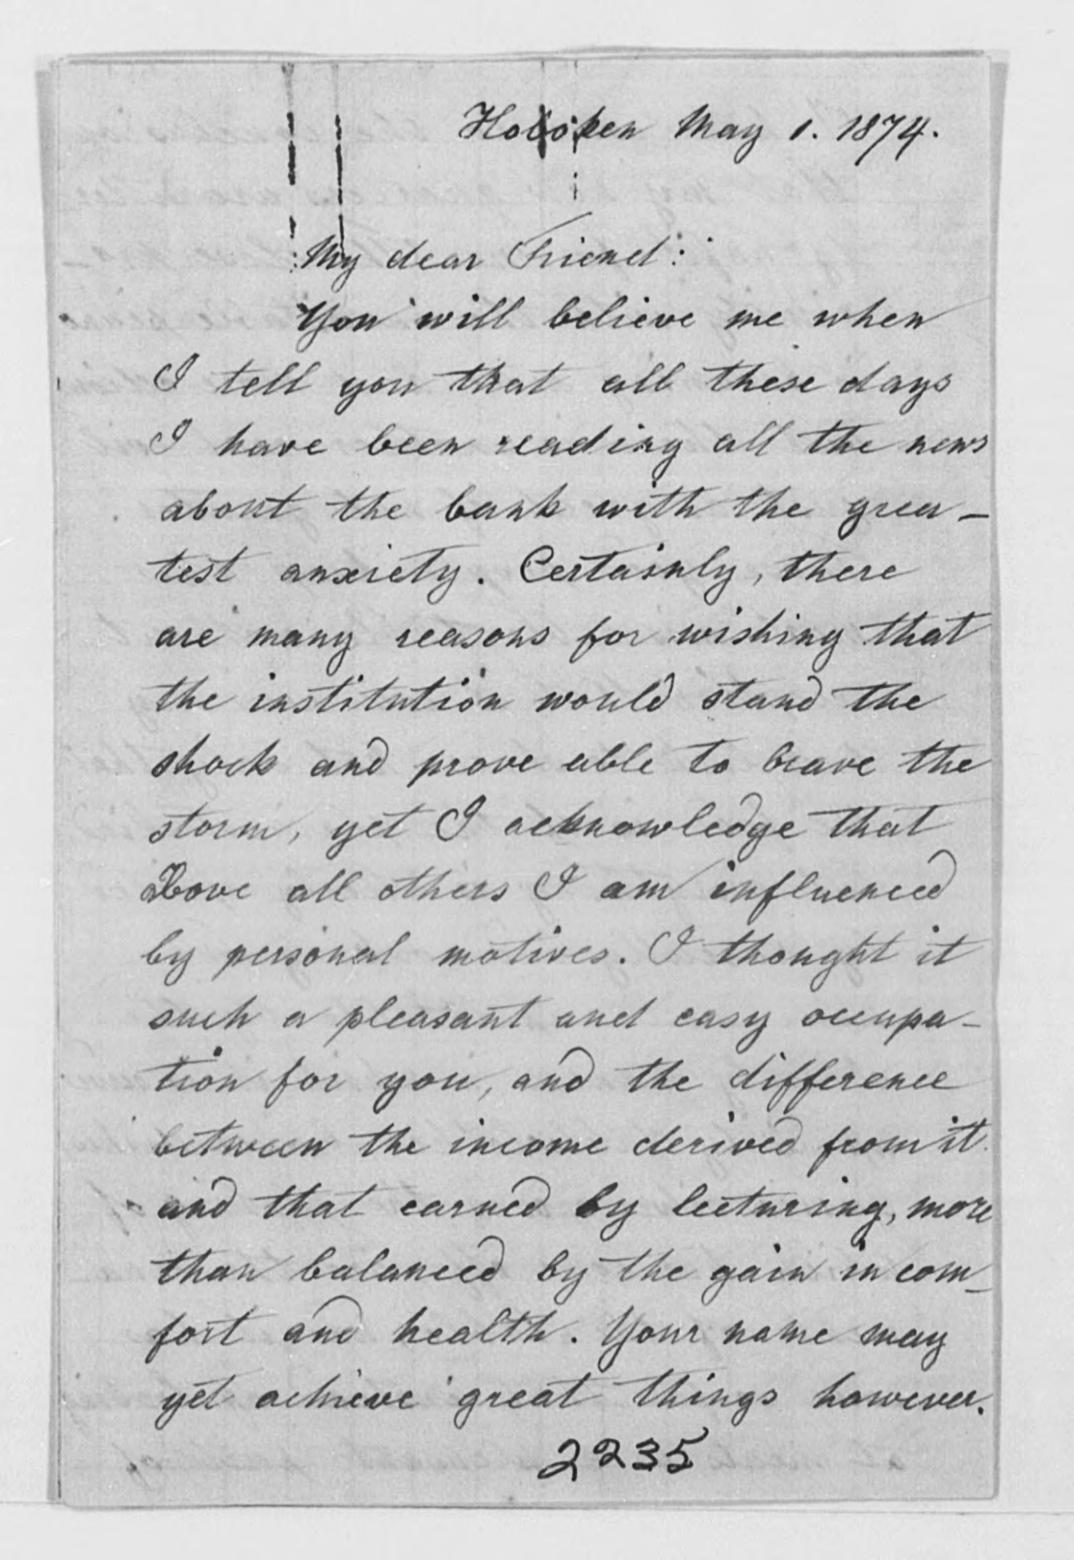 Hoboken May 1. 1874.
My dear Friend:
You will believe me when
I tell you that all these days
I have been reading all the news
about the bank with the grea-
test anxiety. Certainly, there
are many reasons for wishing that
the institution would stand the
shock and prove able to brave the
storm, yet I acknowledge that
above all others I am influenced
by personal motives. I thought it
such a pleasant and easy occupa-
tion for you, and the difference
between the income derived from it
and that earned by lecturing, more
than balanced by the gain in com-
fort and health. Your name may
yet achieve great things however.
2235